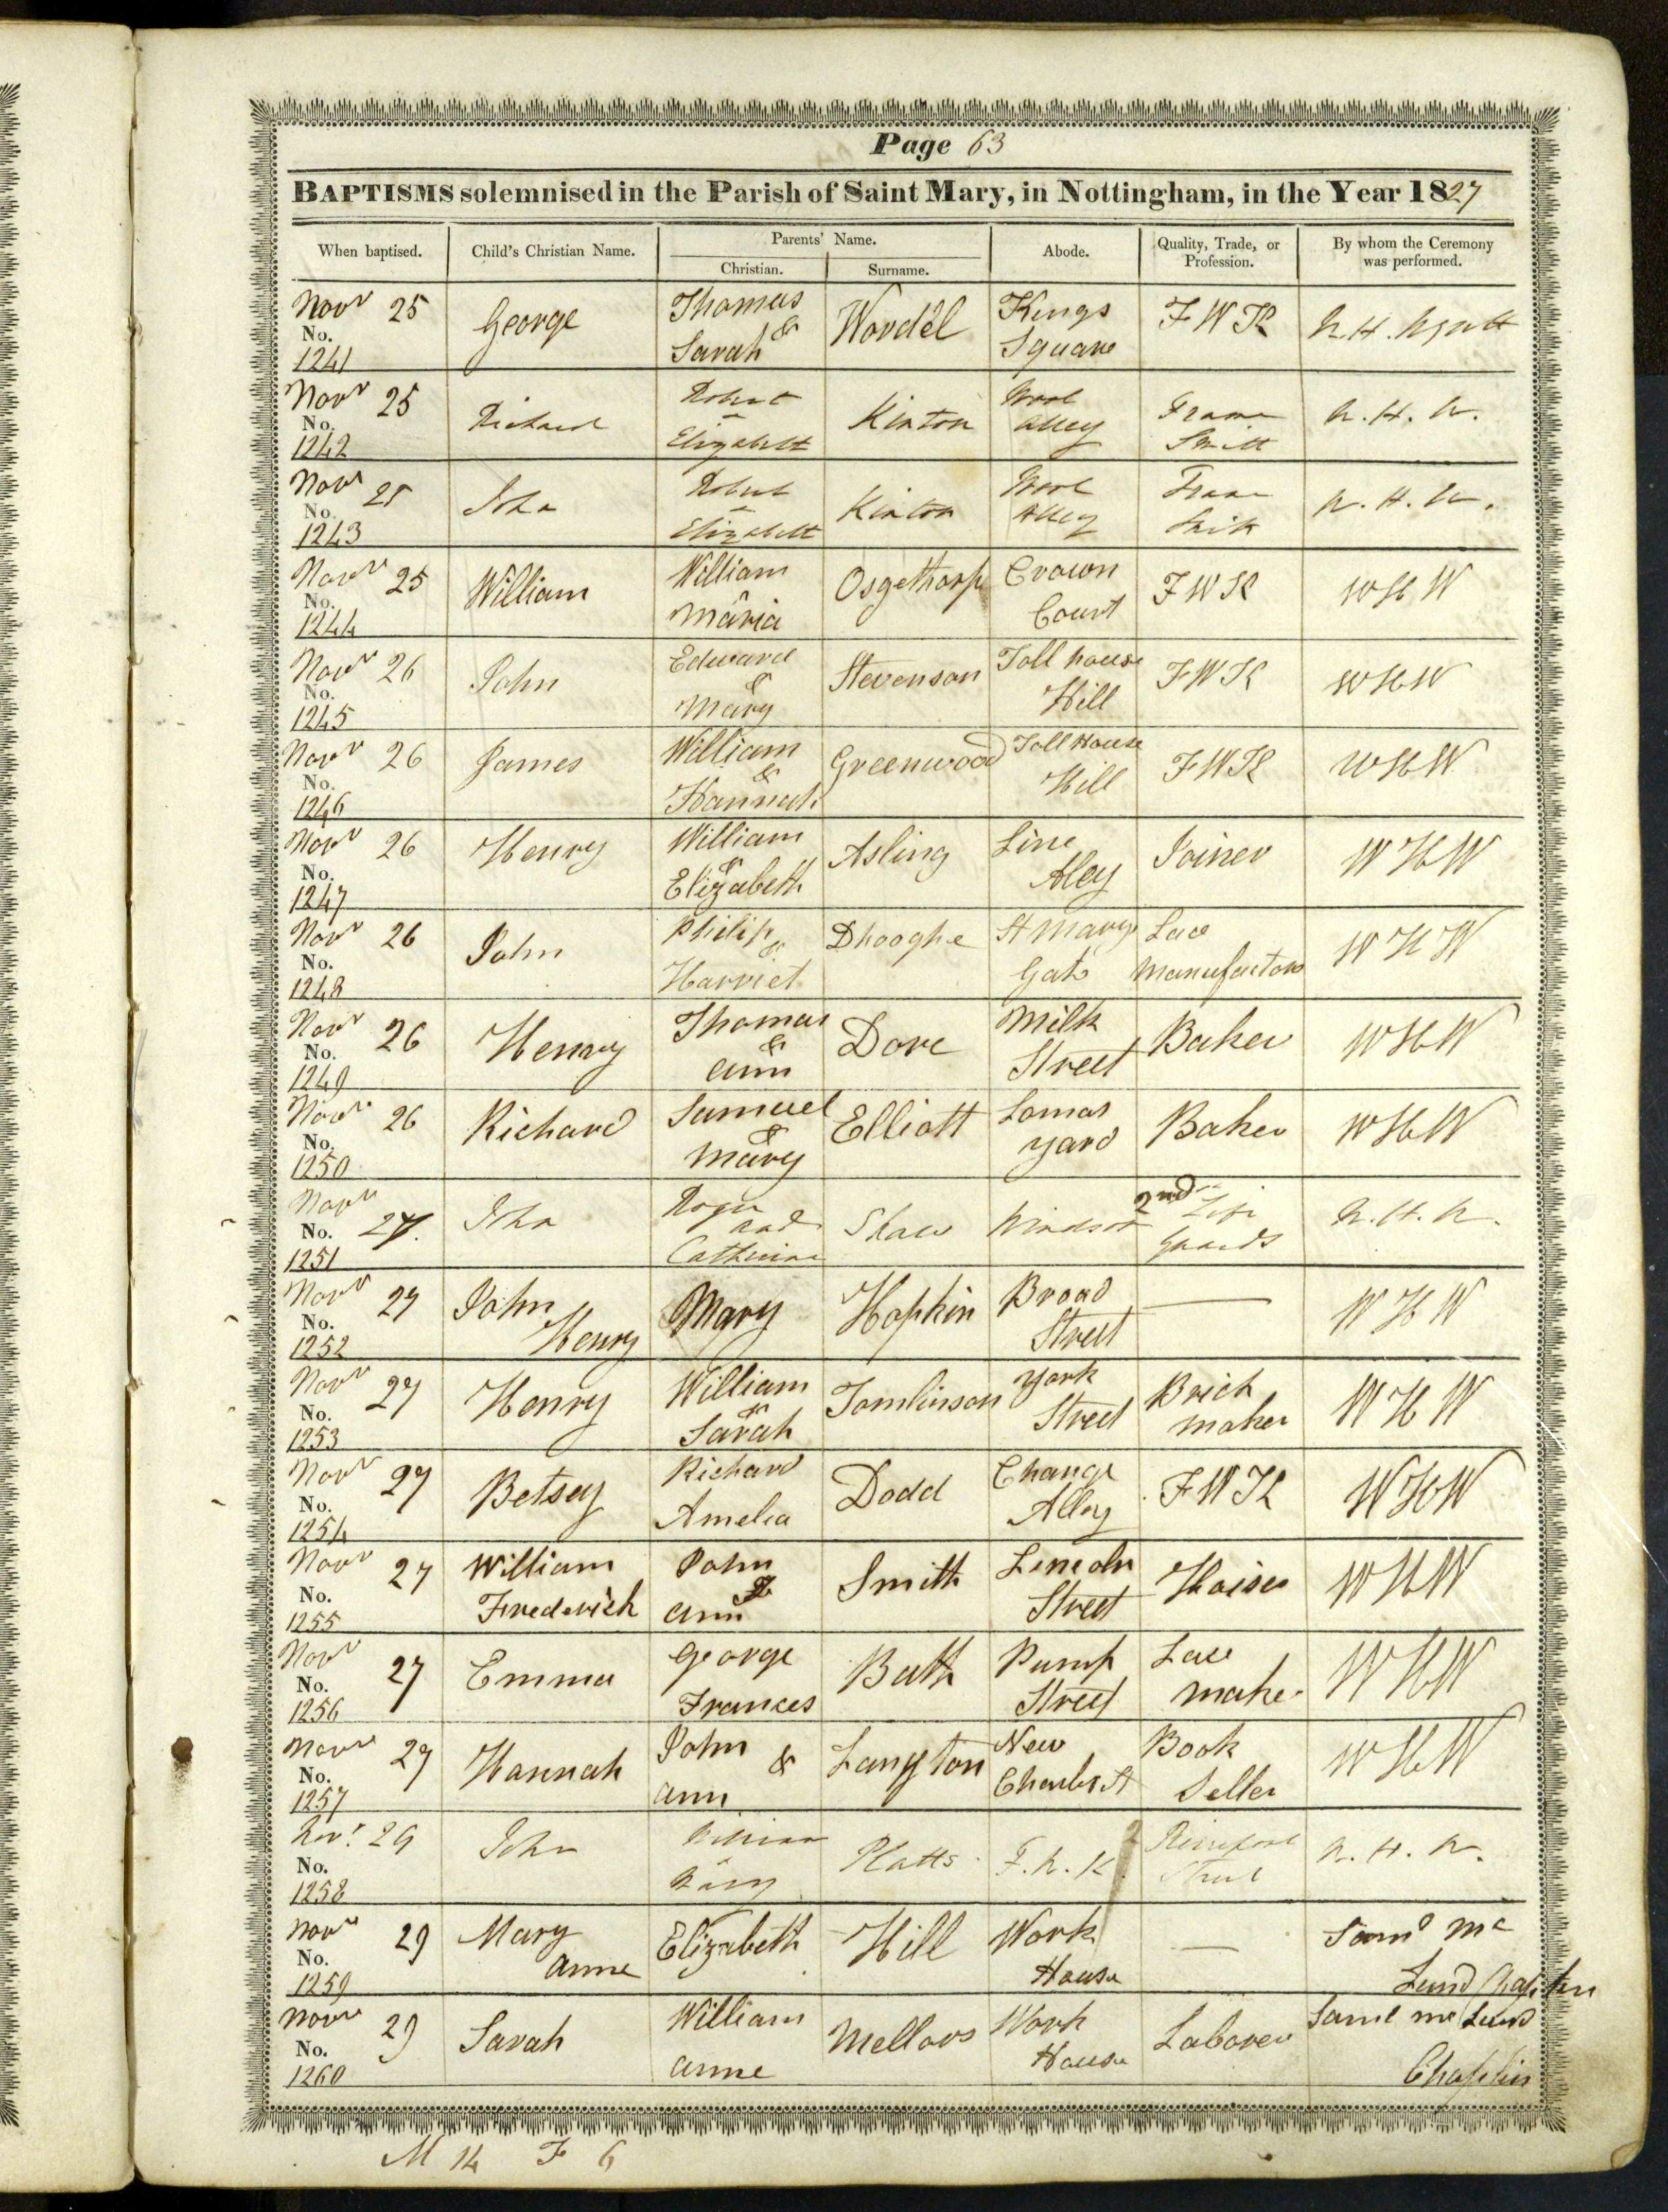 Page 63
BAPTISMS solemnised in the Parish of Saint Mary, in Nottingham, in the Year 1827
When baptised. Child's Christian Name. Parents' Name. Abode. Quality, Trade, or Profession. By whom the Ceremony was performed.
Christian. Surname.
Novr 25 No. 1241 George Thomas & Sarah Wordel Kings Square FWK W. H. Wyatt
Novr 25 No. 1242 Richard Robert Elizabeth Kinton Alley Frame Smith W. H. W.
Novr 25 No. 1243 John Robert Elizabeth Kinton Alley Frame Smith W. H. W.
Novr 25 No. 1244 William William & Maria Osgethorp Crown Court FWK WHW
Novr 26 No. 1245 John Edward & Mary Stevenson Toll house Hill FWK WHW
Novr 26 No. 1246 James William & Hannah Greenwood Toll House Hill FWK WHW
Novr 26 No. 1247 Henry William & Elizabeth Asling Line Aley Joiner WHW
Novr 26 No. 1248 John Philip & Harriet Dhooghe St Mary Gate Lace Manufactor WHW
Novr 26 No. 1249 Henry Thomas & Ann Dove Milk Street Baker WHW
Novr 26 No. 1250 Richard Samuel & Mary Elliott Lomas yard Baker WHW
Novr 27. No. 1251 John Roger and Catherine Shaw Windsor 2nd Life Guards W. H. W.
Novr 27 No. 1252 John Henry Mary Hopkin Broad Street — WHW
Novr 27 No. 1253 Henry William & Sarah Tomlinson York Street Brick maker WHW
Novr 27 No. 1254 Betsey Richard Amelia Dodd Change Alley FWK WHW
Novr 27 No. 1255 William Frederick John & Ann Smith Lincoln Street Hosier WHW
Novr 27 No. 1256 Emma George Frances Bath Pump Street Lace maker WHW
Novr 27 No. 1257 Hannah John & Ann Langton New Charles St Book Seller WHW
Novr 29 No. 1258 John William Mary Platts F. W. K. Street W. H. W.
Novr 29 No. 1259 Mary Anne Elizabeth Hill Work House — Saml Mc Lund Chaplin
Novr 29 No. 1260 Sarah William Anne Mellors Work House Laborer Saml Mc Lund Chaplin
M 14 F 6